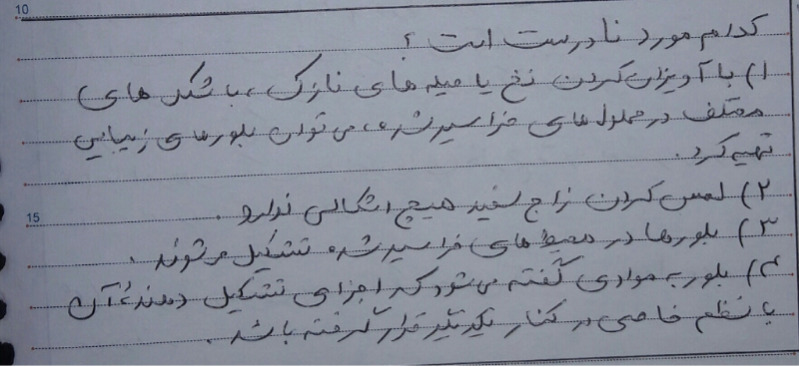 10
کدام مورد نادرست است ؟
۱) با آویزان کردن نخ یا میله های نازک ، با شکل های
مختلف در محلول های فراسیرشده ، می توان بلورهای زیبایی
تهیه کرد .
۲) لمس کردن زاج سفید هیچ اشکالی ندارد .
15
۳) بلورها در محیط های فراسیرشده تشکیل می شوند .
۴) بلور به موادی گفته می شود که اجزای تشکیل دهندهٔ آن
با نظم خاصی در کنار یکدیگر قرار گرفته باشد .